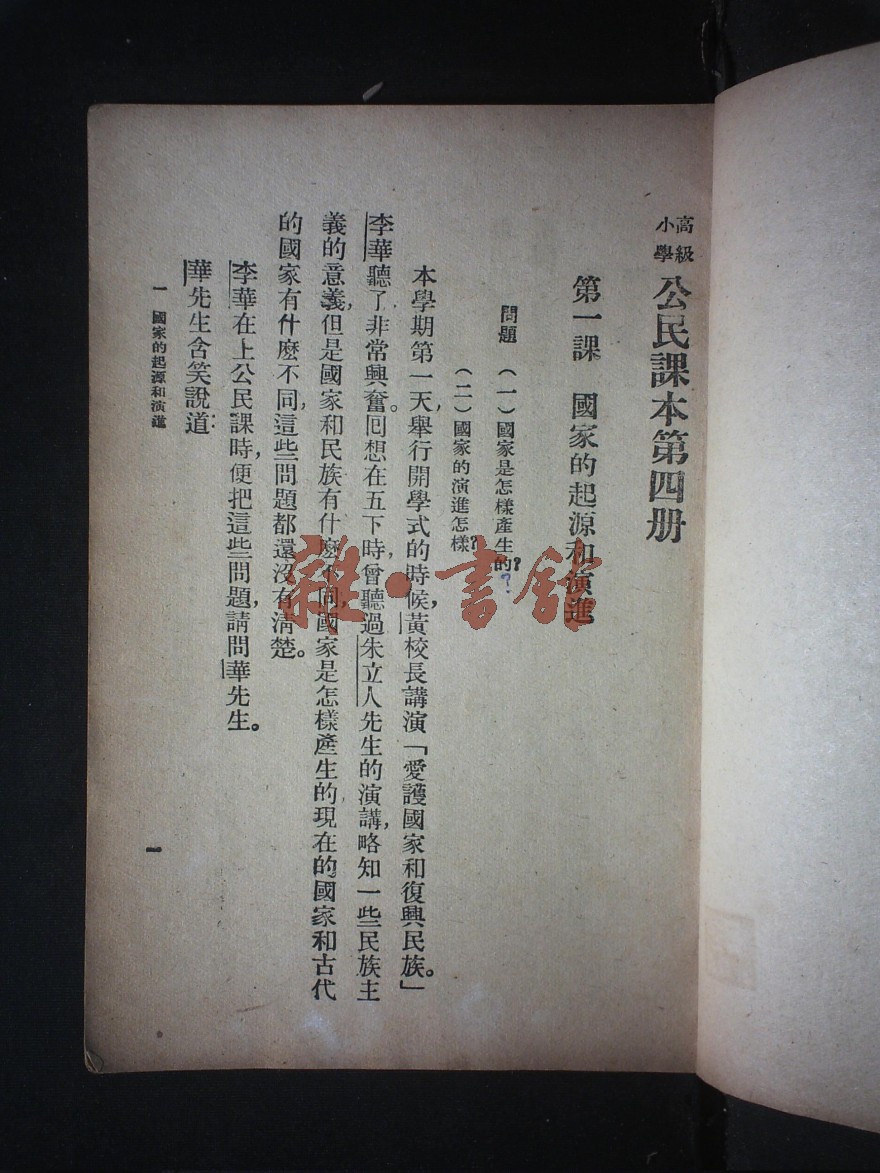 高級
小學
公民課本第四册
第一課　國家的起源和演進
問題　(一)國家是怎樣產生的?
?
(二)國家的演進怎樣?
本學期第一天,舉行開學式的時候,黃校長講演「愛護國家和復興民族。」
李華聽了,非常興奮。回想在五下時,曾聽過朱立人先生的演講,略知一些民族主
義的意義,但是國家和民族有什麼不同,國家是怎樣產生的,現在的國家和古代
的國家有什麼不同,這些問題都還沒有清楚。
李華在上公民課時,便把這些問題,請問華先生。
華先生含笑說道:
一　國家的起源和演進
一
雜·書館